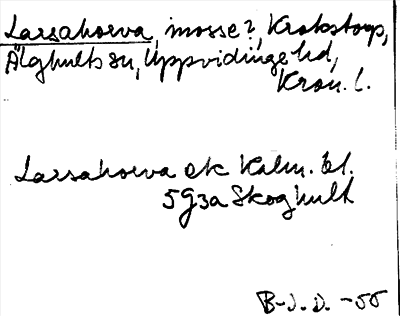 Larsahorva, mosse?, Krokstorp,
Älghults sn, Uppvidinge hd,
Kron. l.
Larsahorva ek Kalm. bl.
5 G 3a Skoghult
B-J. D. -55